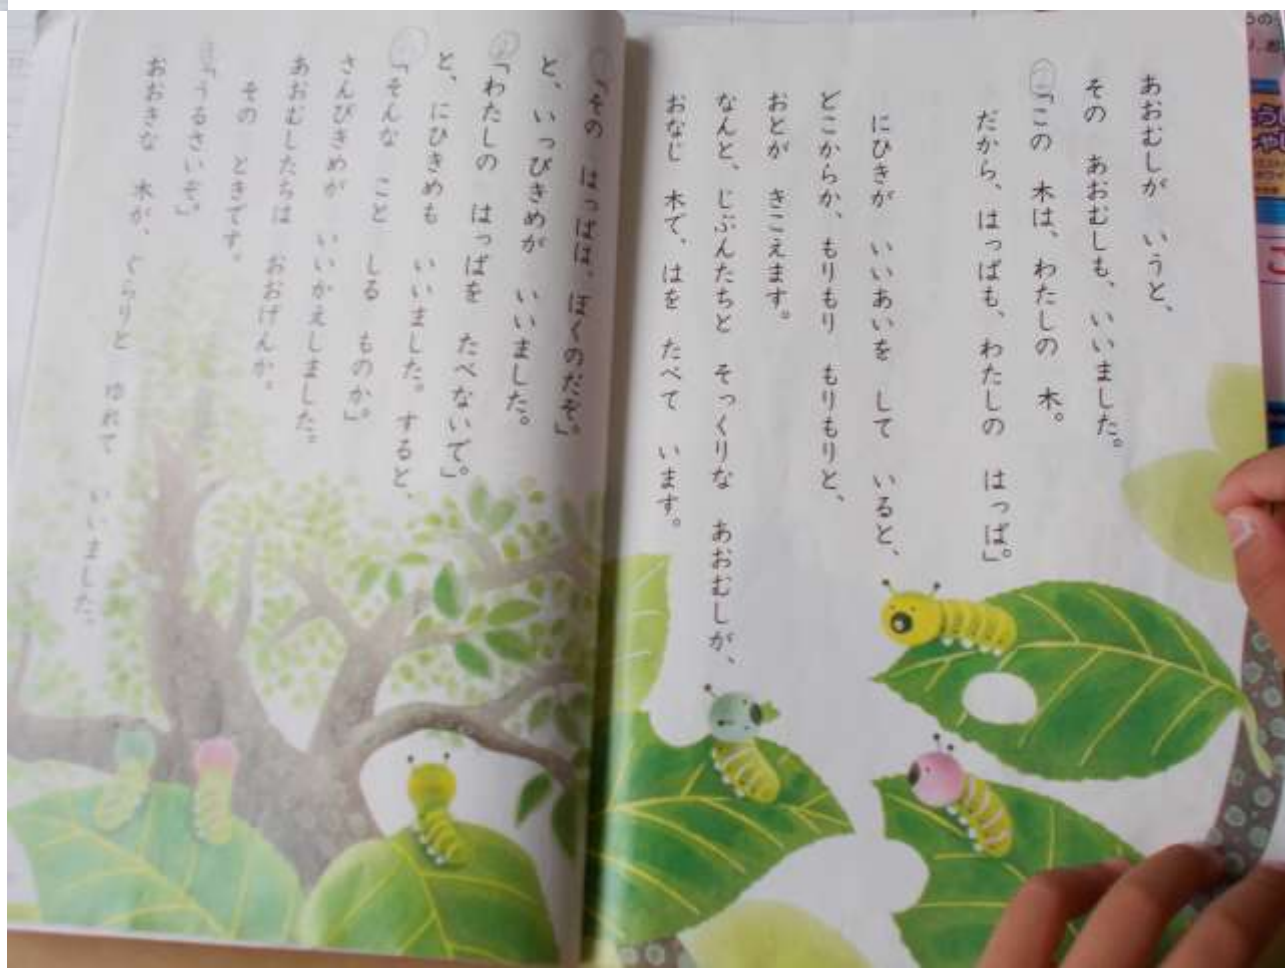 あおむしが いうと、
その あおむしも、いいました。
「この 木は、わたしの 木。
だから、はっぱも、わたしの はっぱ。」
にひきが いいあいを して いると、
どこからか、もりもり もりもりと、
おとが きこえます。
なんと、じぶんたちと そっくりな あおむしが、
おなじ 木で、はを たべて います。
「その はっぱは、ぼくのだぞ。」
と、いっぴきめが いいました。
「わたしの はっぱを たべないで。」
と、にひきめも いいました。すると、
「そんな こと しる ものか。」
さんびきめが いいかえしました。
あおむしたちは おおげんか。
その ときです。
「うるさいぞ。」
おおきな 木が、ぐらりと ゆれて いいました。